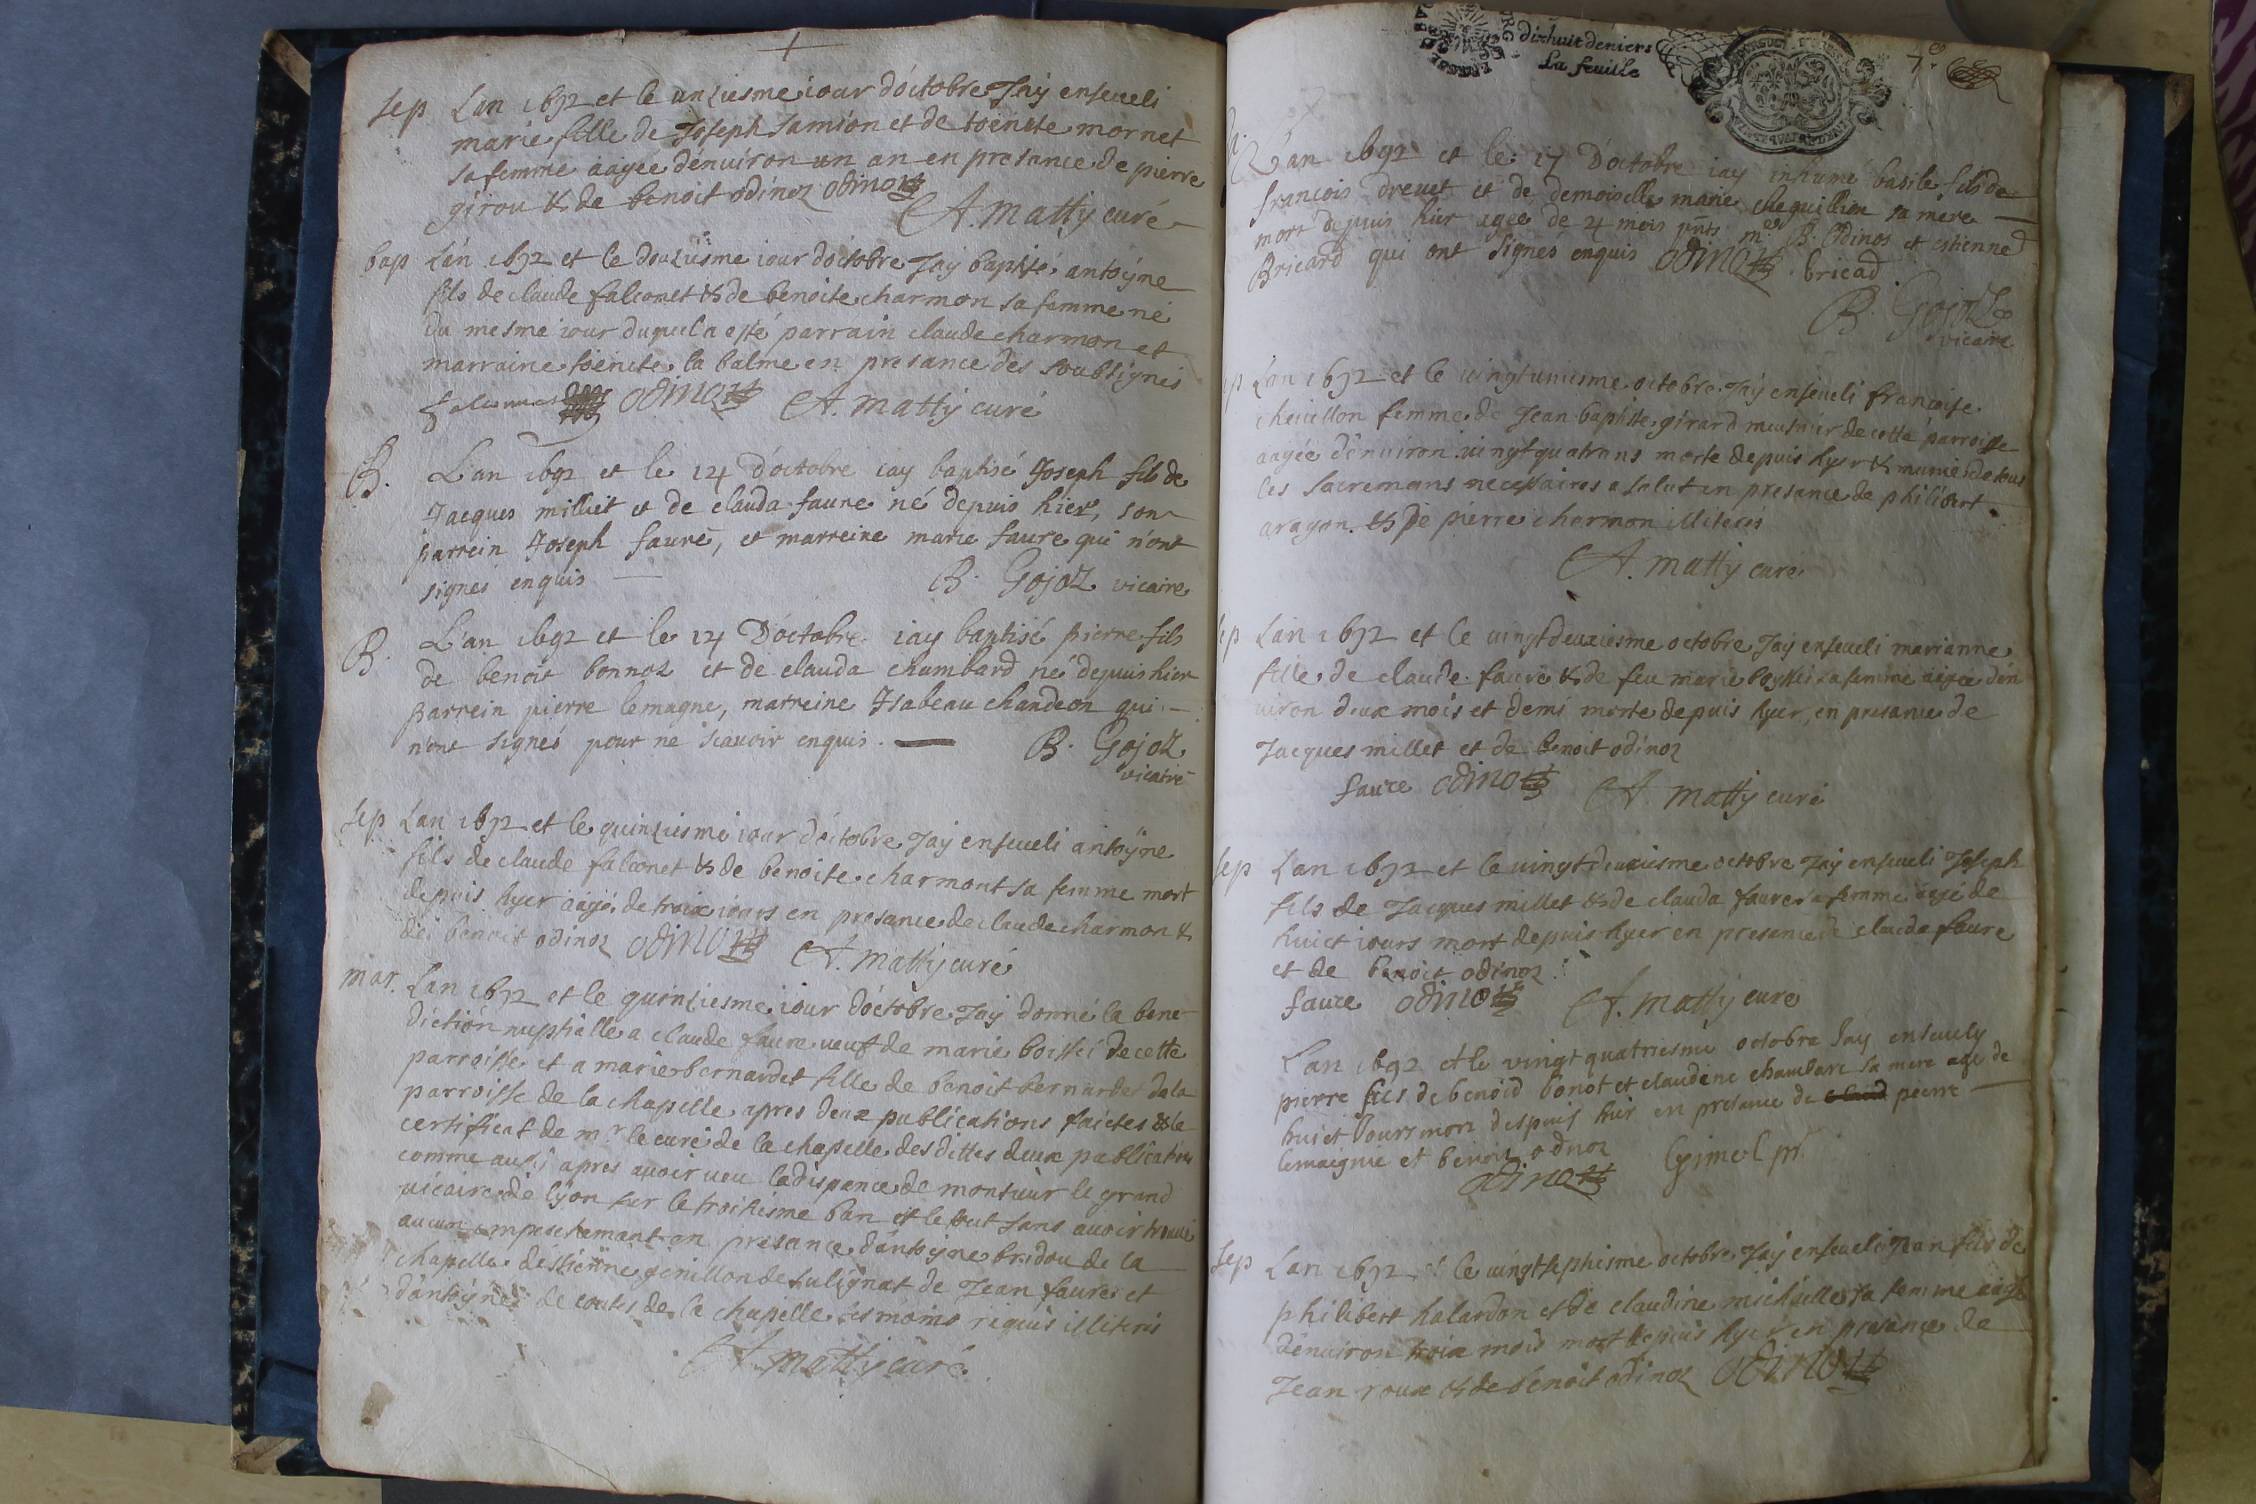 sep Lan 1692 et le unziesme iour doctobre Jay enseueli
marie fille de Joseph Jamion et de toenete mornet
sa femme aagee denuiron un an en presance de pierre
girou & de benoit odinoz odinoz
A. matty curé
bap Lan 1692 et le douziesme iour doctobre Jay baptisé antoÿne
fils de claude falconet & de benoite charmon sa femme né
du mesme iour duquel a esté parrain claude charmon et
marraine toenete la balme en presance des soubsignes
falconnet odinoz A. matty curé
B. L'an 1692 et le 14 D'octobre iay baptisé Joseph fils de
Jacques milliet et de clauda faure né depuis hier, son
parrein Joseph faure, et marreine marie faure qui n'ont
signés enquis B. Gojoz vicaire
B. L'an 1692 et le 14 D'octobre iay baptisé pierre fils
de benoit bonnoz et de clauda chambard né depuis hier
parrein pierre lemagne, marreine Isabeau chandeon qui
n'ont signés pour ne scauoir enquis. B. Gojoz
vicaire
sep Lan 1692 et le quinziesme iour doctobre Jay enseueli antoÿne
fils de claude falconet & de benoite charmont sa femme mort
depuis hyer aagé de troix iours en presance de claude charmon &
de benoit odinoz odinoz A. matty curé
mar. Lan 1692 et le quinziesme iour doctobre Jay donné la bene
diction nuptialle a claude faure ueuf de marie boissei de cette
parroisse et a marie bernardet fille de benoit bernardet de la
parroisse de la chapelle apres deux publications faictes & le
certificat de mr le curé de la chapelle des dittes deux publications
comme aussi apres auoir ueu la dispance de monsieur le grand
uicaire de lÿon sur le troisiesme ban et le tout sans auoir trouué
aucun empeschemant en presance dantoÿne bridou de la
chapelle destienne genillon de sulignat de Jean faure et
dantoÿne de coutes de la chapelle tesmoins requis illiteris
A. matty curé
dixhuit deniers
La feuille
7e
L'an 1692 et le 17 D'octobre iay inhumé basile fils de
francois dreuet et de demoiselle marie chequillion sa mere
mort depuis hier agee de 4 mois pnts mes B. Odinos et estienne
Bricard qui ont signes enquis odinoz bricad
B. Gojoz
vicaire
Lan 1692 et le uingtuniesme octobre Jay enseueli francoise
cheuillon femme de Jean baptiste girard meusnier de cette parroisse
aagée denuiron uingt quatrans morte depuis hyer & munie de tous
les sacremans necessaires a salut en presance de philibert
aragon & de pierre charmon illiteres
A. matty curé
sep Lan 1692 et le uingtdeuxiesme octobre Jay enseueli marianne
fille de claude faure & de feu marie boyssei sa femme aigée den
uiron deux mois et demi morte depuis hyer, en presance de
Jacques millet et de benoit odinoz
faure odinoz A. matty curé
sep Lan 1692 et le uingtdeuxiesme octobre Jay enseueli Joseph
fils de Jacques millet & de clauda faure sa femme aigé de
huict iours mort depuis hyer en presance de claude faure
et de benoit odinoz
faure odinoz A. matty curé
L'an 1692 et le vingt quatriesme octobre Jay enseuely
pierre fils de benoid bonot et claudine chambare sa mere age de
huict Jours mort despuis hier en presance de pierre
lemaignie et benoit odnoz
odinoz
sep Lan 1692 et le uingtseptiesme octobre Jay enseueli Jean fils de
philibert halardon et de claudine michaille sa femme aagé
denuiron troix mois mort depuis hyer en presance de
Jean roux & de benoit odinoz odinoz